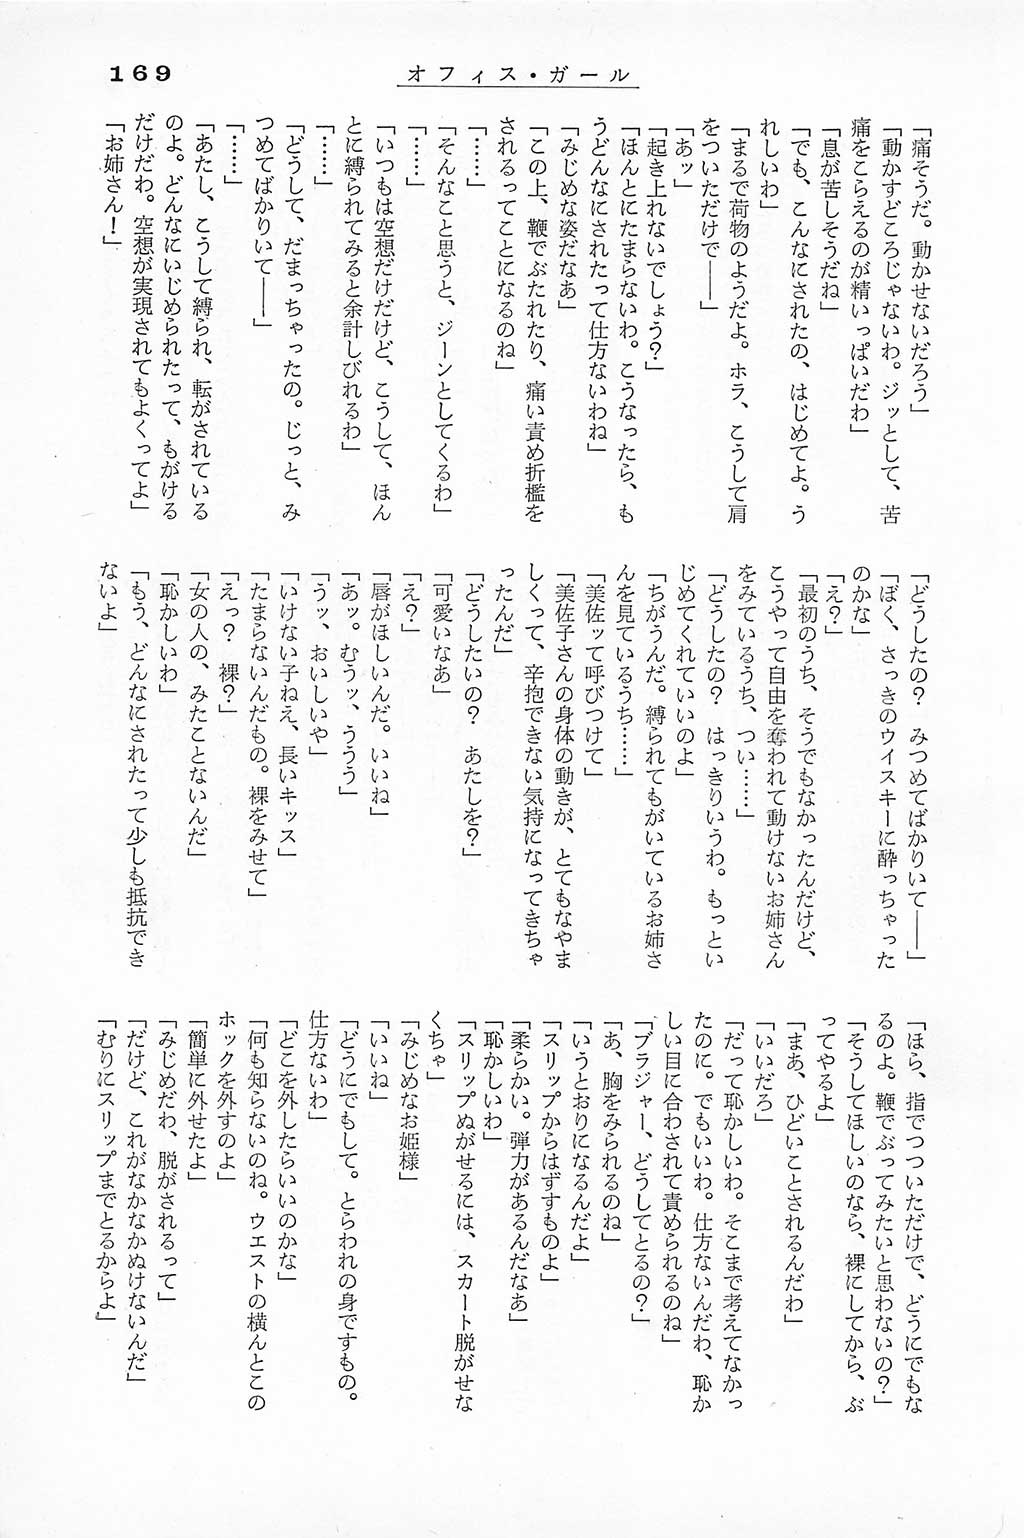 169
オフィス・ガール
「痛そうだ。動かせないだろう」
「動かすどころじゃないわ。ジッとして、苦
痛をこらえるのが精いっぱいだわ」
「息が苦しそうだね」
「でも、こんなにされたの、はじめてよ。う
れしいわ」
「まるで荷物のようだよ。ホラ、こうして肩
をついただけで――」
「あッ」
「起き上れないでしょう？」
「ほんとにたまらないわ。こうなったら、も
うどんなにされたって仕方ないわね」
「みじめな姿だなあ」
「この上、鞭でぶたれたり、痛い責め折檻を
されるってことになるのね」
「……」
「そんなこと思うと、ジーンとしてくるわ」
「……」
「いつもは空想だけだけど、こうして、ほん
とに縛られてみると余計しびれるわ」
「……」
「どうして、だまっちゃったの。じっと、み
つめてばかりいて――」
「……」
「あたし、こうして縛られ、転がされている
のよ。どんなにいじめられたって、もがける
だけだわ。空想が実現されてもよくってよ」
「お姉さん！」
「どうしたの？　みつめてばかりいて――」
「ぼく、さっきのウイスキーに酔っちゃった
のかな」
「え？」
「最初のうち、そうでもなかったんだけど、
こうやって自由を奪われて動けないお姉さん
をみているうち、つい……」
「どうしたの？　はっきりいうわ。もっとい
じめてくれていいのよ」
「ちがうんだ。縛られてもがいているお姉さ
んを見ているうち……」
「美佐ッて呼びつけて」
「美佐子さんの身体の動きが、とてもなやま
しくって、辛抱できない気持になってきちゃ
ったんだ」
「どうしたいの？　あたしを？」
「可愛いなあ」
「え？」
「唇がほしいんだ。いいね」
「あッ。むうッ、ううう」
「うッ、おいしいや」
「いけない子ねえ、長いキッス」
「たまらないんだもの。裸をみせて」
「えっ？　裸？」
「女の人の、みたことないんだ」
「恥かしいわ」
「もう、どんなにされたって少しも抵抗でき
ないよ」
「ほら、指でつついただけで、どうにでもな
るのよ。鞭でぶってみたいと思わないの？」
「そうしてほしいのなら、裸にしてから、ぶ
ってやるよ」
「まあ、ひどいことされるんだわ」
「いいだろ」
「だって恥かしいわ。そこまで考えてなかっ
たのに。でもいいわ。仕方ないんだわ、恥か
しい目に合わされて責められるのね」
「ブラジャー、どうしてとるの？」
「あ、胸をみられるのね」
「いうとおりになるんだよ」
「スリップからはずすものよ」
「柔らかい。弾力があるんだなあ」
「恥かしいわ」
「スリップぬがせるには、スカート脱がせな
くちゃ」
「みじめなお姫様」
「いいね」
「どうにでもして。とらわれの身ですもの。
仕方ないわ」
「どこを外したらいいのかな」
「何も知らないのね。ウエストの横んとこの
ホックを外すのよ」
「簡単に外せたよ」
「みじめだわ、脱がされるって」
「だけど、これがなかなかぬけないんだ」
「むりにスリップまでとるからよ」